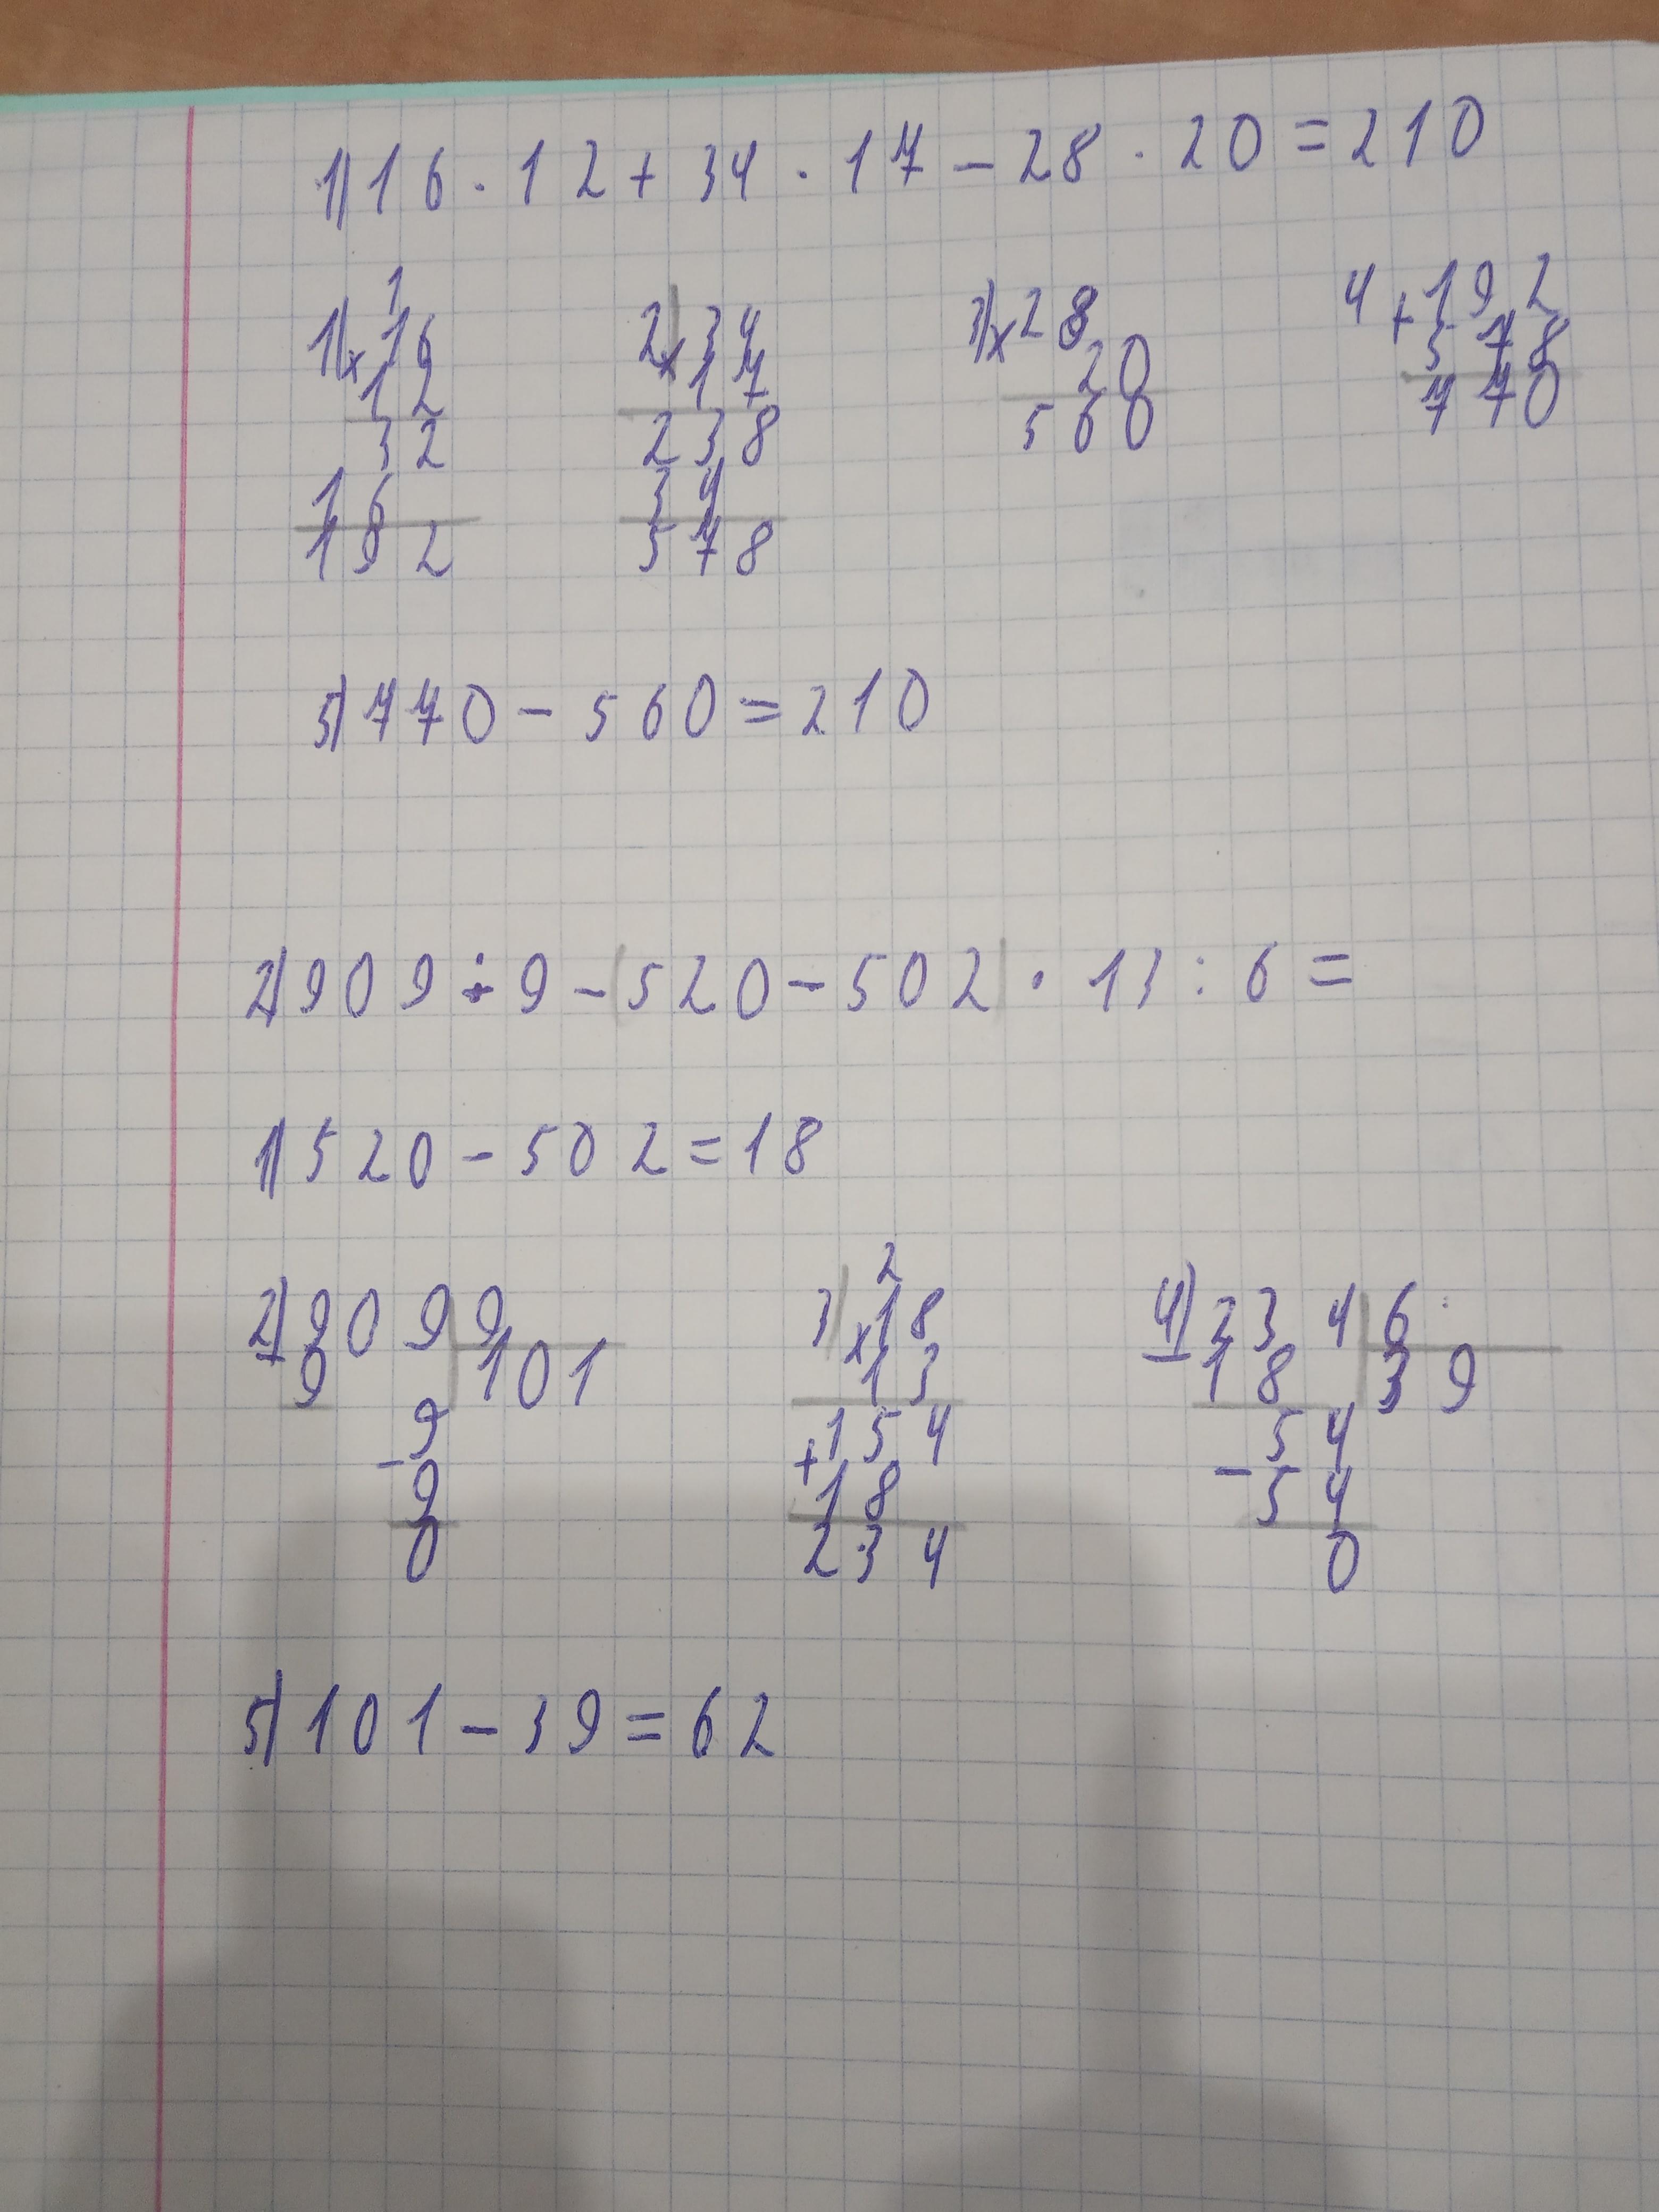 1) 16 · 12 + 34 · 17 - 28 · 20 = 210
1
1) 16 2) 34 3) 28 4 + 192
x 12 x 17 x 20 578
32 238 560 770
16 34
192 578
5) 770 - 560 = 210
2) 909 ÷ 9 - (520 - 502) · 13 : 6 =
1) 520 - 502 = 18
2
2) 909 | 9 3) 18 4) 234 | 6
- 9 | 101 x 13 - 18 | 39
9 + 154 54
- 9 18 - 54
0 234 0
5) 101 - 39 = 62